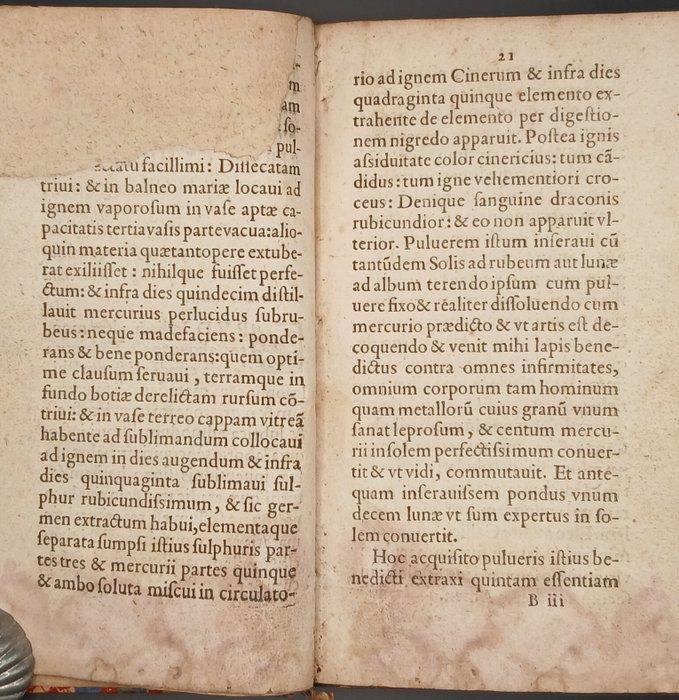 m
am
ſo-
pul-
facillimi: Diſſecatam
triui: & in balneo mariæ locaui ad
ignem vaporoſum in vaſe aptæ ca-
pacitatis tertia vaſis parte vacua: alio-
quin materia quæ tantopere extube-
rat exiliiſſet : nihilque fuiſſet perfe-
ctum: & infra dies quindecim diſtil-
lauit mercurius perlucidus ſubru-
beus: neque madefaciens : ponde-
rans & bene ponderans: quem opti-
me clauſum ſeruaui , terramque in
fundo botiæ derelictam rurſum cō-
triui: & in vaſe terreo cappam vitreā
habente ad ſublimandum collocaui
ad ignem in dies augendum & infra
dies quinquaginta ſublimaui ſul-
phur rubicundiſſimum, & ſic ger-
men extractum habui, elementaque
ſeparata ſumpſi iſtius ſulphuris par-
tes tres & mercurii partes quinque
& ambo ſoluta miſcui in circulato-
21
rio ad ignem Cinerum & infra dies
quadraginta quinque elemento ex-
trahente de elemento per digeſtio-
nem nigredo apparuit. Poſtea ignis
aſsiduitate color cinericius: tum cā-
didus: tum igne vehementiori cro-
ceus: Denique ſanguine draconis
rubicundior: & eo non apparuit vl-
terior. Puluerem iſtum inſeraui cū
tantūdem Solis ad rubeum aut lunæ
ad album terendo ipſum cum pul-
uere fixo & réaliter diſſoluendo cum
mercurio prædicto & vt artis eſt de-
coquendo & venit mihi lapis bene-
dictus contra omnes infirmitates,
omnium corporum tam hominum
quam metallorū cuius granū vnum
ſanat leproſum, & centum mercu-
rii in ſolem perfectiſsimum conuer-
tit & vt vidi, commutauit. Et ante-
quam inſerauiſſem pondus vnum
decem lunæ vt ſum expertus in ſo-
lem conuertit.
Hoc acquiſito pulueris iſtius be-
nedicti extraxi quintam eſſentiam
B iii